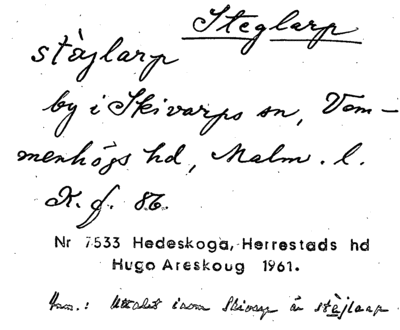 Steglarp
stäjlarp
by i Skivarps sn, Vem-
menhögs hd, Malm. l.
K. f. 86.
Nr 7533 Hedeskoga, Herrestads hd
Hugo Areskoug 1961.
Anm.: Uttalet inom Skivarp är stäjlarp